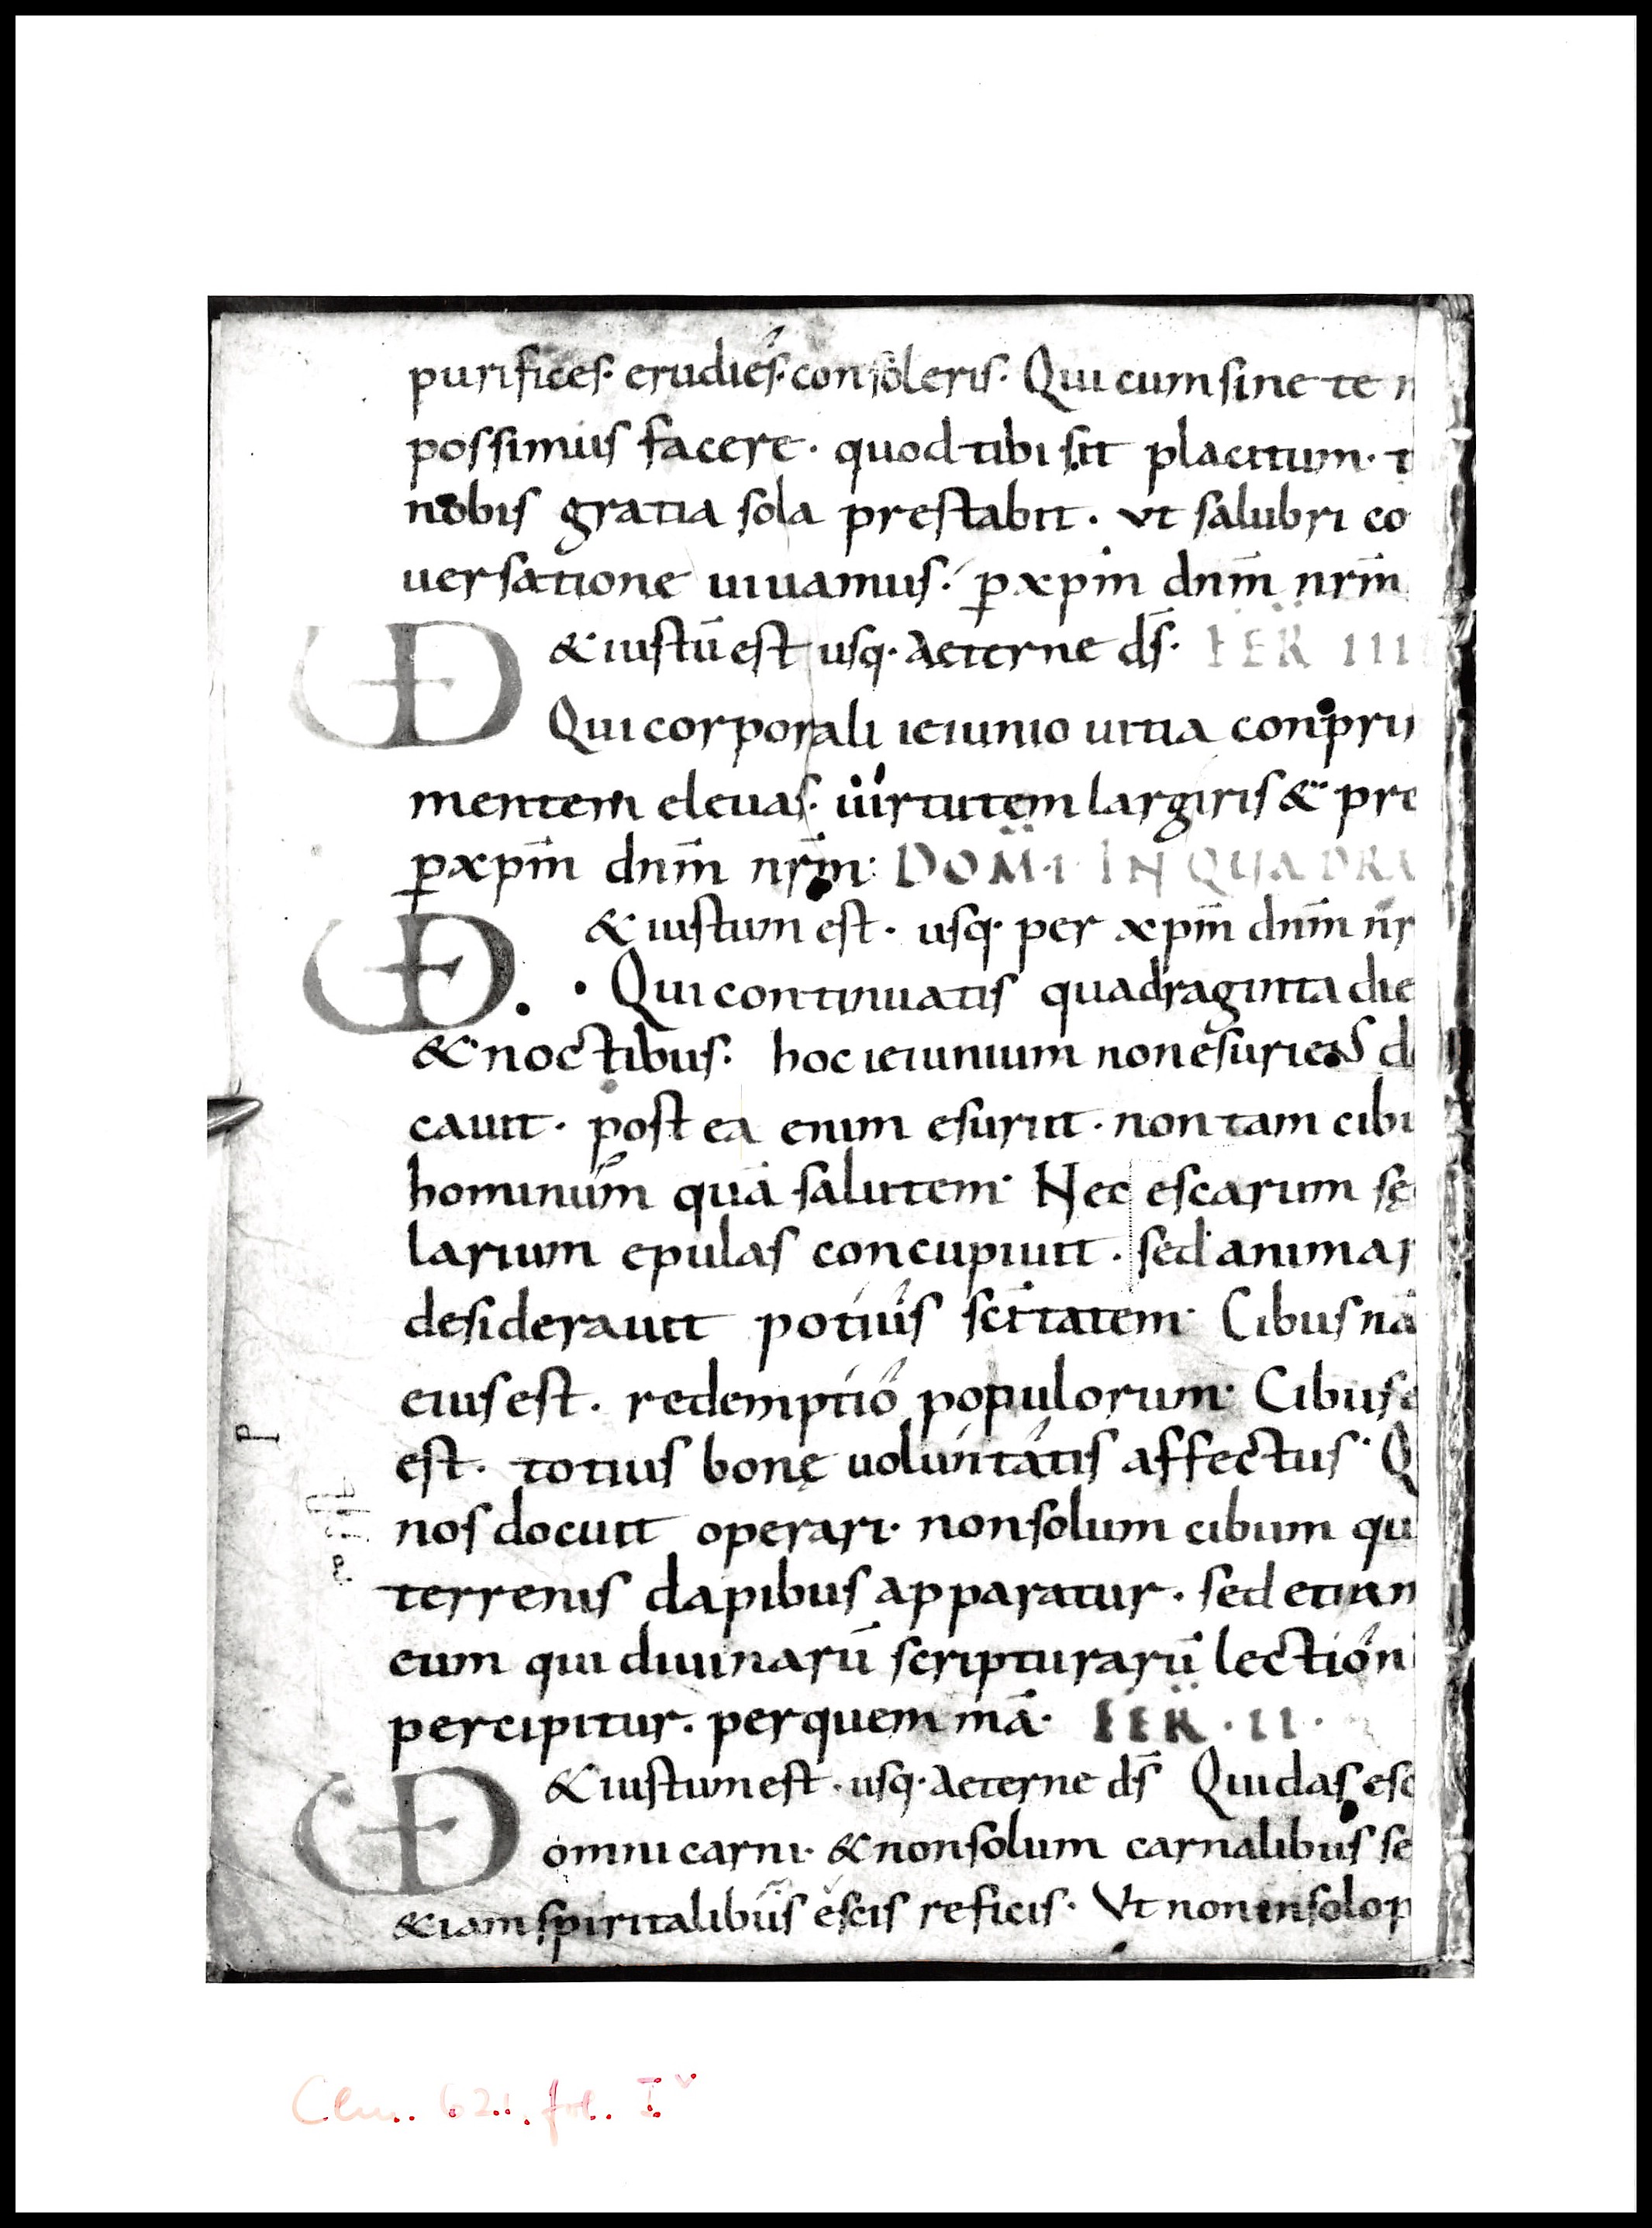 purifices· erudies· consoleris· Qui cum sine te n
possimus facere · quod tibi sit placitum· t
nobis gratia sola prestabit · vt salubri co
uersatione uiuamus· p̲ xp̄m dn̄m nr̄m
UD & iustū est usq· Aeterne d̄s· FER̄ III
Qui corporali ieiunio uitia conpri
mentem eleuas· uirtutem largiris & pre
p̲ xp̄m dn̄m nr̄m: DOM̄·I· IN QUADRA
UD & iustum est · usq· per xp̄m dn̄m nr
· Qui continuatis quadraginta die
& noctibus· hoc ieiunium non esuriens de
cauit · post ea enim esuriit · non tam cibi
hominum quā salutem· Nec escarum sęc
larium epulas concupiuit · sed animar
desiderauit potius sc̄itatem· Cibus nā
eius est · redemptio populorum· Cibus e
est · totius bonę uoluntatis affectus· Q
nos docuit operari· non solum cibum qu
terrenis dapibus apparatur · sed etiam
eum qui diuinarū scripturarū lection
percipitur · per quem mā· FER̄ · II ·
UD & iustum est · usq· Aeterne d̄s Qui das esc
omni carni· & non solum carnalibus se
&iam spiritalibus escis reficis· Vt non in solo p
p
Clm. 621. fol. Iv